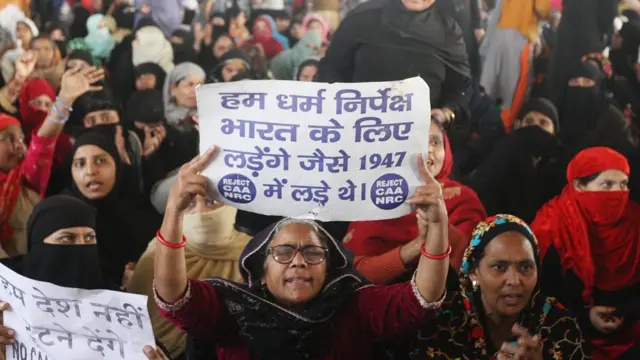 हम धर्म निर्पेक्ष
भारत के लिए
लड़ेंगे जैसे 1947
में लड़े थे।
REJECT
CAA
NRC
REJECT
CAA
NRC
देश नहीं
टने देंगे
NO CAA